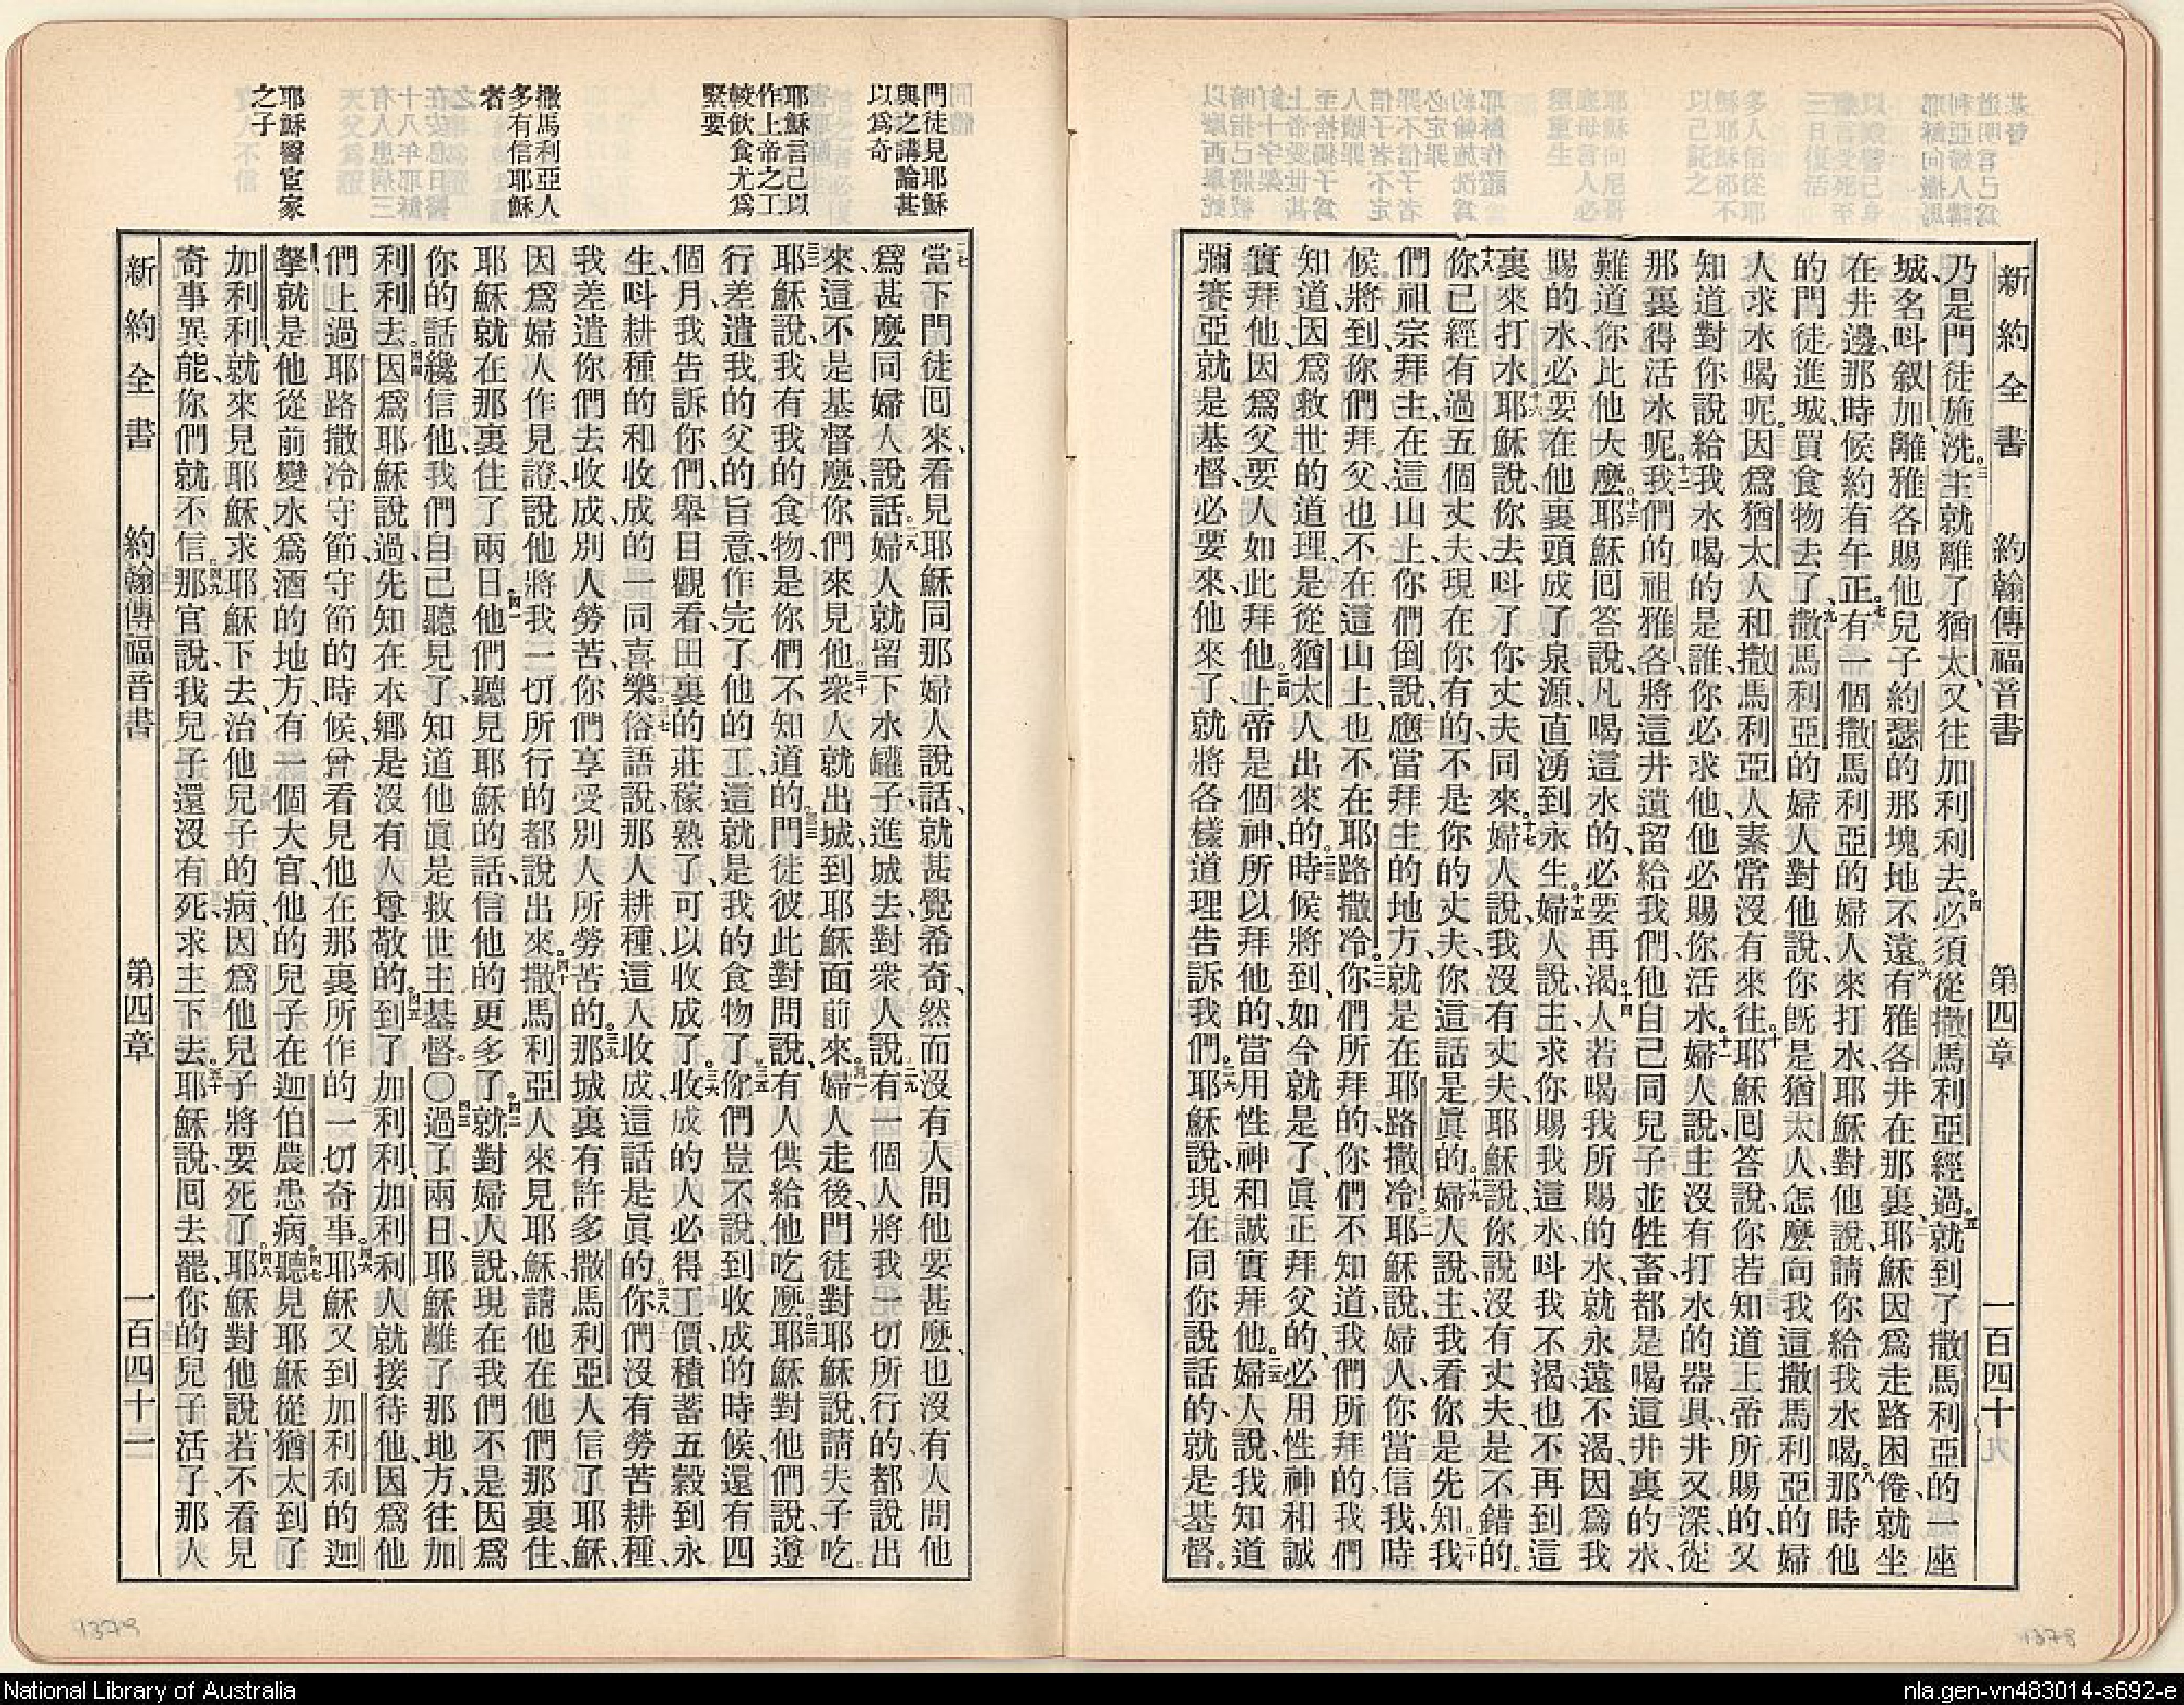 新約全書 約翰傳福音書 第四章 一百四十
乃是門徒施洗、三主就離了猶太、又往加利利去。四必須從撒馬利亞經過。五就到了撒馬利亞的一座
城、名叫叙加、離雅各賜他兒子約瑟的那塊地不遠。六有雅各井在那裏、耶穌因爲走路困倦、就坐
在井邊、那時候約有午正。七有一個撒馬利亞的婦人來打水、耶穌對他說、請你給我水喝。八那時他
的門徒進城、買食物去了。九撒馬利亞的婦人對他說、你既是猶太人、怎麼向我這撒馬利亞的婦
人求水喝呢。因爲猶太人和撒馬利亞人素常沒有來往。十耶穌回答說、你若知道上帝所賜的、又
知道對你說給我水喝的是誰、你必求他、他必賜你活水。十一婦人說、主沒有打水的器具、井又深、從
那裏得活水呢。十二我們的祖雅各、將這井遺留給我們、他自己同兒子並牲畜、都是喝這井裏的水、
難道你比他大麼。十三耶穌回答說、凡喝這水的、必要再渴、十四人若喝我所賜的水、就永遠不渴、因爲我
賜的水、必要在他裏頭成了泉源、直湧到永生。十五婦人說、主、求你賜我這水、叫我不渴、也不再到這
裏來打水。十六耶穌說、你去叫了你丈夫同來。十七婦人說、我沒有丈夫、耶穌說、你說沒有丈夫、是不錯的。
十八你已經有過五個丈夫、現在你有的、不是你的丈夫、你這話是眞的。十九婦人說、主、我看你是先知。二十我
們祖宗拜主、在這山上、你們倒說、應當拜主的地方、就是在耶路撒冷。二一耶穌說、婦人、你當信我、時
候將到、你們拜父、也不在這山上、也不在耶路撒冷。二二你們所拜的、你們不知道、我們所拜的、我們
知道、因爲救世的道理、是從猶太人出來的。二三時候將到、如今就是了、眞正拜父的、必用性神和誠
實拜他、因爲父要人如此拜他。二四上帝是個神、所以拜他的、當用性神和誠實拜他。二五婦人說、我知道
彌賽亞就是基督、必要來、他來了、就將各樣道理告訴我們。二六耶穌說、現在同你說話的、就是基督。
門徒見耶穌
與之講論甚
以爲奇
耶穌言己以
作上帝之工
較飲食尤爲
緊要
撒馬利亞人
多有信耶穌
者
耶穌醫宦家
之子
二七當下門徒回來、看見耶穌同那婦人說話、就甚覺希奇、然而沒有人問他要甚麼、也沒有人問他
爲甚麼同婦人說話。二八婦人就留下水罐子、進城去、對衆人說、二九有一個人將我一切所行的都說出
來、這不是基督麼、你們來見他。三十衆人就出城、到耶穌面前來。三一婦人走後、門徒對耶穌說、請夫子吃。
三二耶穌說、我有我的食物、是你們不知道的。三三門徒彼此對問說、有人供給他吃麼。三四耶穌對他們說、遵
行差遣我的父的旨意、作完了他的工、這就是我的食物了。三五你們豈不說、到收成的時候、還有四
個月、我告訴你們、舉目觀看、田裏的莊稼熟了、可以收成了。三六收成的人必得工價、積蓄五穀到永
生、叫耕種的和收成的一同喜樂。三七俗語說、那人耕種、這人收成、這話是眞的。三八你們沒有勞苦耕種、
我差遣你們去收成、別人勞苦、你們享受別人所勞苦的。三九那城裏有許多撒馬利亞人信了耶穌、
因爲婦人作見證說、他將我一切所行的都說出來。四十撒馬利亞人來見耶穌、請他在他們那裏住、
耶穌就在那裏住了兩日。四一他們聽見耶穌的話、信他的更多了。四二就對婦人說、現在我們不是因爲
你的話纔信他、我們自己聽見了、知道他眞是救世主基督。〇四三過了兩日、耶穌離了那地方、往加
利利去。四四因爲耶穌說過、先知在本鄉是沒有人尊敬的。四五到了加利利、加利利人就接待他、因爲他
們上過耶路撒冷守節、守節的時候、曾看見他在那裏所作的一切奇事。四六耶穌又到加利利的迦
拏、就是他從前變水爲酒的地方、有一個大官、他的兒子在迦伯農患病。四七聽見耶穌從猶太到了
加利利、就來見耶穌、求耶穌下去、治他兒子的病、因爲他兒子將要死了。四八耶穌對他說、若不看見
奇事異能、你們就不信。四九那官說、我兒子還沒有死、求主下去。五十耶穌說、回去罷、你的兒子活了、那人
新約全書 約翰傳福音書 第四章 一百四十一
1379
1378
National Library of Australia
nla.gen-vn483014-s692-e